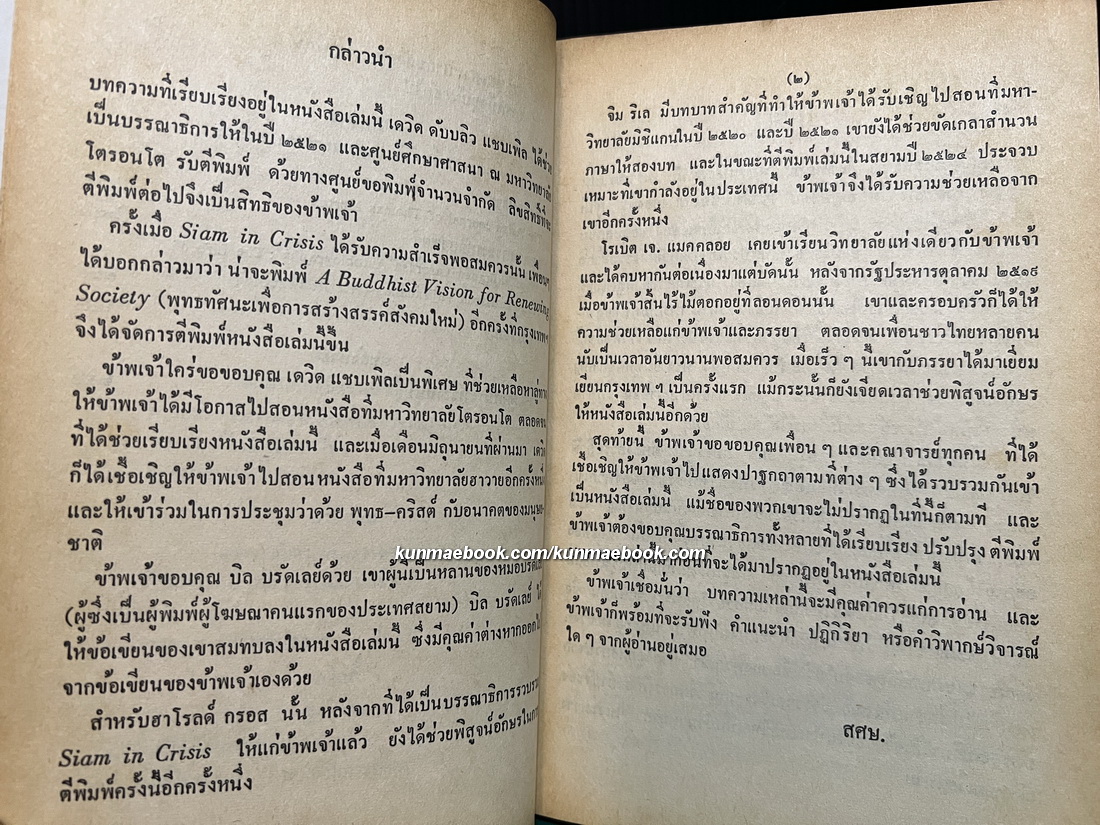 กล่าวนำ
บทความที่เรียบเรียงอยู่ในหนังสือเล่มนี้ เดวิด ดับบลิว แชบเพิล ได้ช่วย
เป็นบรรณาธิการให้ในปี ๒๕๒๑ และศูนย์ศึกษาศาสนา ณ มหาวิทยาลัย
โตรอนโต รับตีพิมพ์ ด้วยทางศูนย์ขอพิมพ์จำนวนจำกัด ลิขสิทธิ์ที่จะ
ตีพิมพ์ต่อไปจึงเป็นสิทธิของข้าพเจ้า
ครั้งเมื่อ Siam in Crisis ได้รับความสำเร็จพอสมควรนั้น เพื่อนๆ
ได้บอกกล่าวมาว่า น่าจะพิมพ์ A Buddhist Vision for Renewing
Society (พุทธทัศนะเพื่อการสร้างสรรค์สังคมใหม่) อีกครั้งที่กรุงเทพฯ
จึงได้จัดการตีพิมพ์หนังสือเล่มนี้ขึ้น
ข้าพเจ้าใคร่ขอขอบคุณ เดวิด แชบเพิลเป็นพิเศษ ที่ช่วยเหลือหาลู่ทาง
ให้ข้าพเจ้าได้มีโอกาสไปสอนหนังสือที่มหาวิทยาลัยโตรอนโต ตลอดจน
ที่ได้ช่วยเรียบเรียงหนังสือเล่มนี้ และเมื่อเดือนมิถุนายนที่ผ่านมา เดวิด
ก็ได้เชื้อเชิญให้ข้าพเจ้าไปสอนหนังสือที่มหาวิทยาลัยฮาวายอีกครั้งหนึ่ง
และให้เข้าร่วมในการประชุมว่าด้วย พุทธ–คริสต์ กับอนาคตของมนุษย
ชาติ
ข้าพเจ้าขอบคุณ บิล บรัดเลย์ด้วย เขาผู้นี้เป็นหลานของหมอบรัดเลย์
(ผู้ซึ่งเป็นผู้พิมพ์ผู้โฆษณาคนแรกของประเทศสยาม) บิล บรัดเลย์ ได้
ให้ข้อเขียนของเขาสมทบลงในหนังสือเล่มนี้ ซึ่งมีคุณค่าต่างหากออกไป
จากข้อเขียนของข้าพเจ้าเองด้วย
สำหรับฮาโรลด์ กรอส นั้น หลังจากที่ได้เป็นบรรณาธิการรวบรวม
Siam in Crisis ให้แก่ข้าพเจ้าแล้ว ยังได้ช่วยพิสูจน์อักษรในการ
ตีพิมพ์ครั้งนี้อีกครั้งหนึ่ง
(๒)
จิม ริเล มีบทบาทสำคัญที่ทำให้ข้าพเจ้าได้รับเชิญไปสอนที่มหา-
วิทยาลัยมิชิแกนในปี ๒๕๒๐ และปี ๒๕๒๑ เขายังได้ช่วยขัดเกลาสำนวน
ภาษาให้สองบท และในขณะที่ตีพิมพ์เล่มนี้ในสยามปี ๒๕๒๔ ประจวบ
เหมาะที่เขากำลังอยู่ในประเทศนี้ ข้าพเจ้าจึงได้รับความช่วยเหลือจาก
เขาอีกครั้งหนึ่ง
โรเบิต เจ. แมคคลอย เคยเข้าเรียนวิทยาลัยแห่งเดียวกับข้าพเจ้า
และได้คบหากันต่อเนื่องมาแต่บัดนั้น หลังจากรัฐประหารตุลาคม ๒๕๑๙
เมื่อข้าพเจ้าสิ้นไร้ไม้ตอกอยู่ที่ลอนดอนนั้น เขาและครอบครัวก็ได้ให้
ความช่วยเหลือแก่ข้าพเจ้าและภรรยา ตลอดจนเพื่อนชาวไทยหลายคน
นับเป็นเวลาอันยาวนานพอสมควร เมื่อเร็ว ๆ นี้เขากับภรรยาได้มาเยี่ยม
เยียนกรุงเทพ ฯ เป็นครั้งแรก แม้กระนั้นก็ยังเจียดเวลาช่วยพิสูจน์อักษร
ให้หนังสือเล่มนี้อีกด้วย
สุดท้ายนี้ ข้าพเจ้าขอขอบคุณเพื่อน ๆ และคณาจารย์ทุกคน ที่ได้
เชื้อเชิญให้ข้าพเจ้าไปแสดงปาฐกถาตามที่ต่าง ๆ ซึ่งได้รวบรวมกันเข้า
เป็นหนังสือเล่มนี้ แม้ชื่อของพวกเขาจะไม่ปรากฏในที่นี้ก็ตามที และ
ข้าพเจ้าต้องขอบคุณบรรณาธิการทั้งหลายที่ได้เรียบเรียง ปรับปรุง ตีพิมพ์
เหล่านี้มาก่อนที่จะได้มาปรากฏอยู่ในหนังสือเล่มนี้
ข้าพเจ้าเชื่อมั่นว่า บทความเหล่านี้จะมีคุณค่าควรแก่การอ่าน และ
ข้าพเจ้าก็พร้อมที่จะรับฟัง คำแนะนำ ปฏิกิริยา หรือคำวิพากษ์วิจารณ์
ใด ๆ จากผู้อ่านอยู่เสมอ
สศษ.
kunmaebook.com/kunmaebook.com